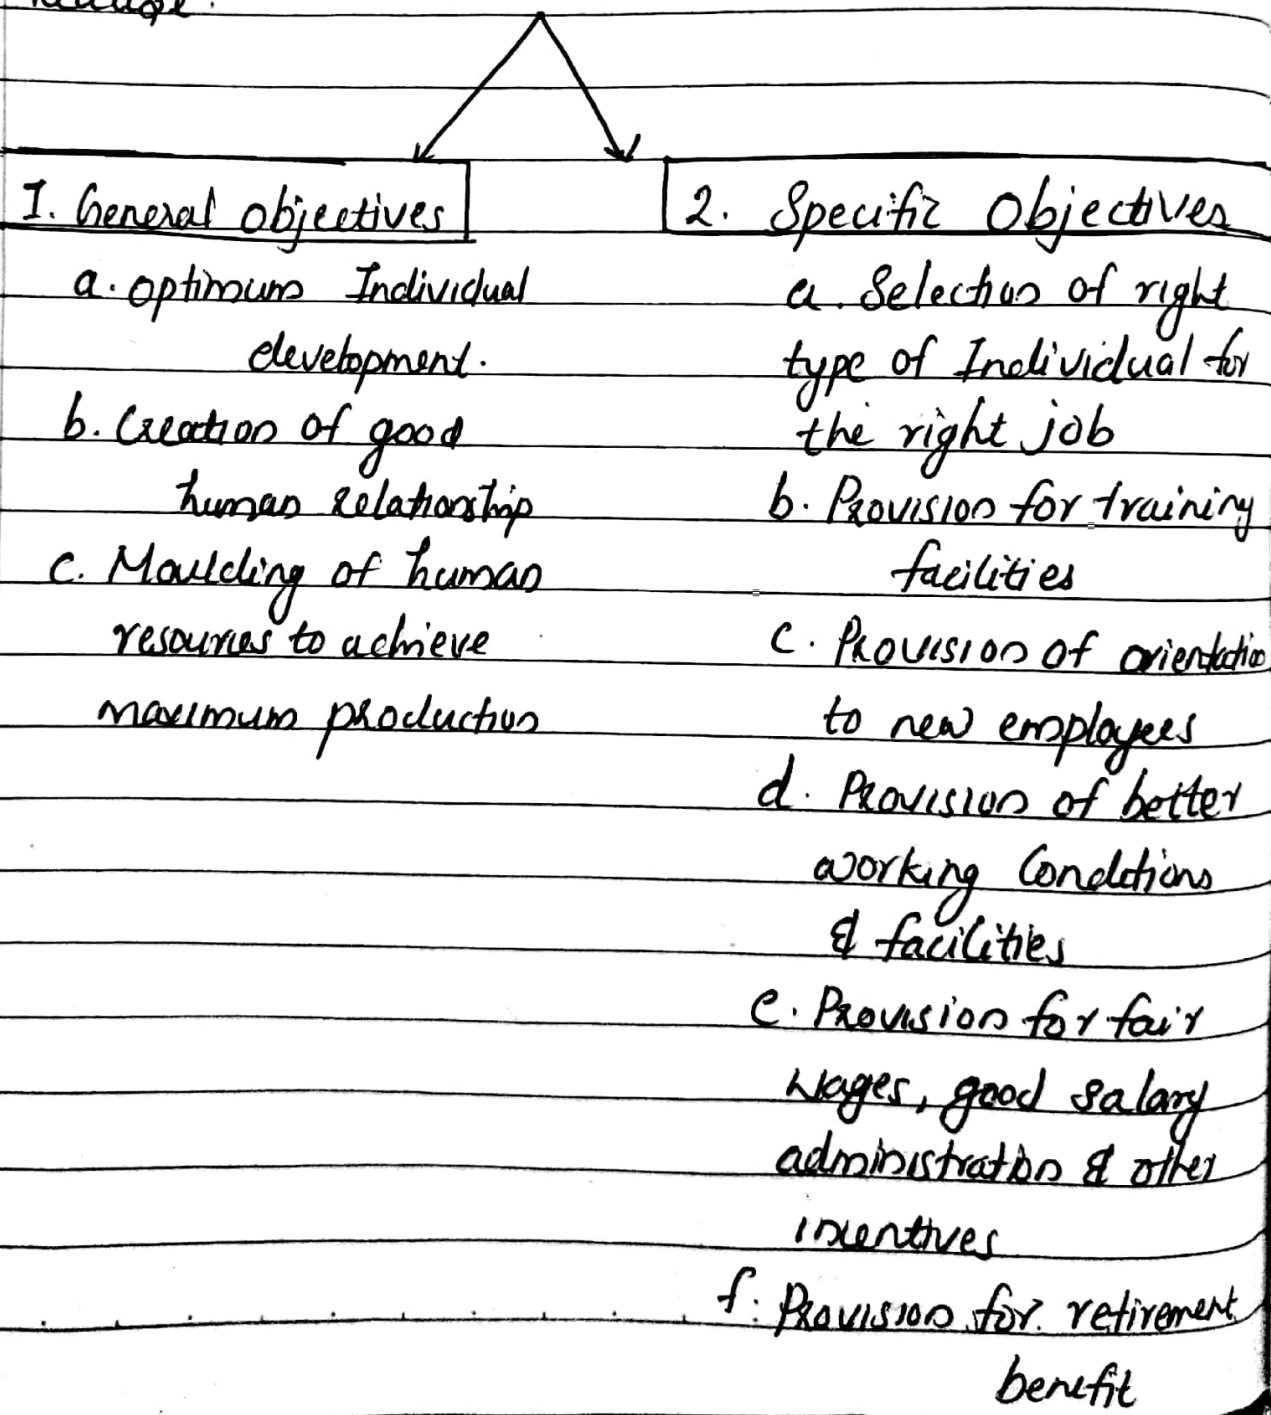 1. General objectives
a. optimum Individual
development.
b. Creation of good
human relationship
c. Moulding of human
resources to achieve
maximum production
2. Specific Objectives
a. Selection of right
type of Individual for
the right job
b. Provision for training
facilities
c. Provision of orientation
to new employees
d. Provision of better
working Conditions
& facilities
e. Provision for fair
wages, good salary
administration & other
incentives
f. Provision for retirement
benefit